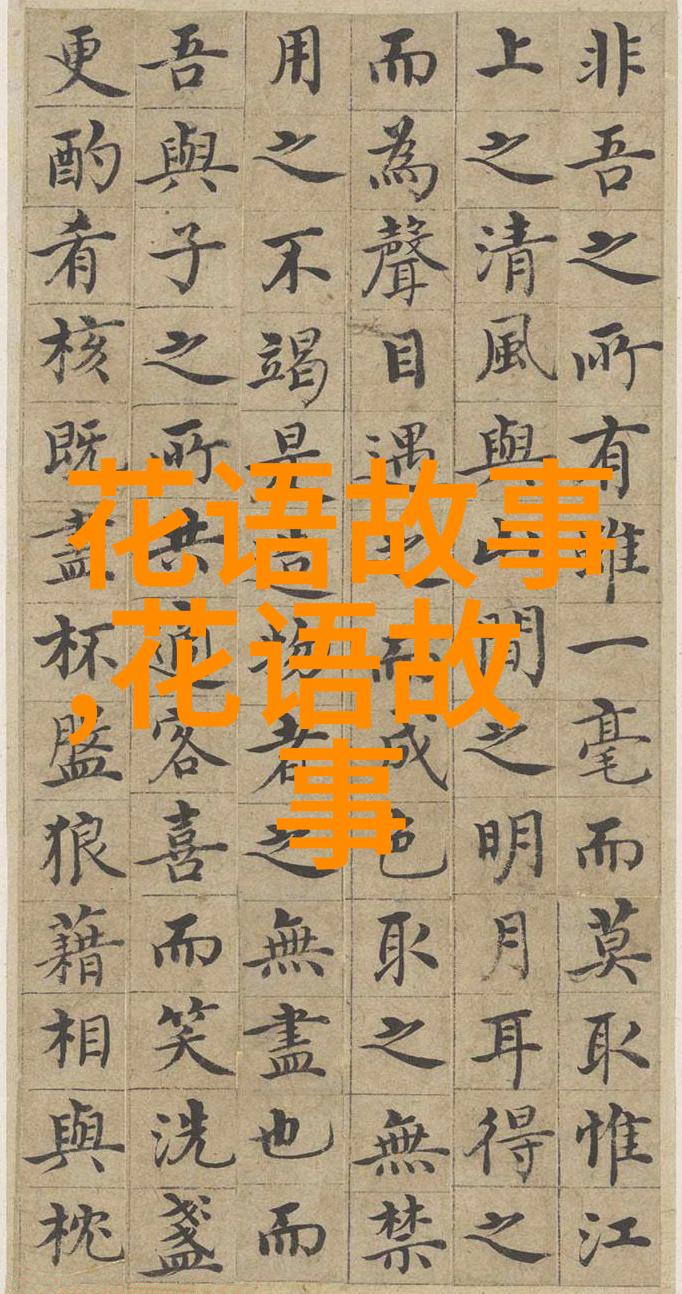 非吾之所有雖一毫而莫取惟江
上之清風與山間之明月耳得之
而為聲目遇之而成色取之無禁
用之不竭是造物者之無盡也而
吾與子之所共適客喜而笑洗盞
更酌肴核既盡杯盤狼藉相與枕
花语故事
,花语故
事